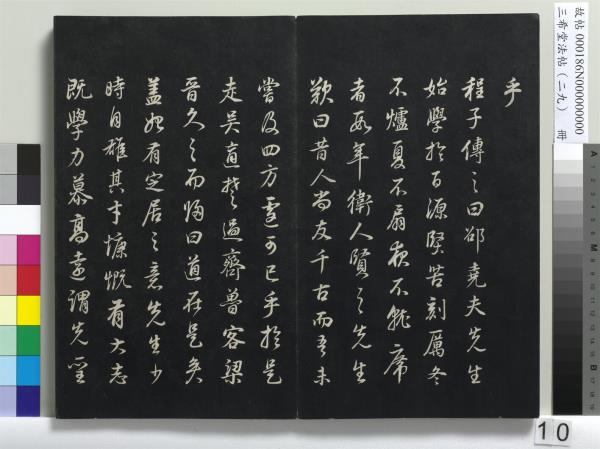 乎
程子傳之曰邵堯夫先生
始學於百源堅苦刻厲冬
不爐夏不扇夜不就席
者數年衛人賢之先生
歎曰昔人尚友千古而吾未
嘗及四方遽可已乎於是
走吳適楚過齊魯客梁
晉久之而歸曰道在是矣
蓋始有定居之意先生少
時自雄其才慷慨有大志
既學力慕高遠謂先聖
故帖 000186N000000000
三希堂法帖(二九) 冊
10